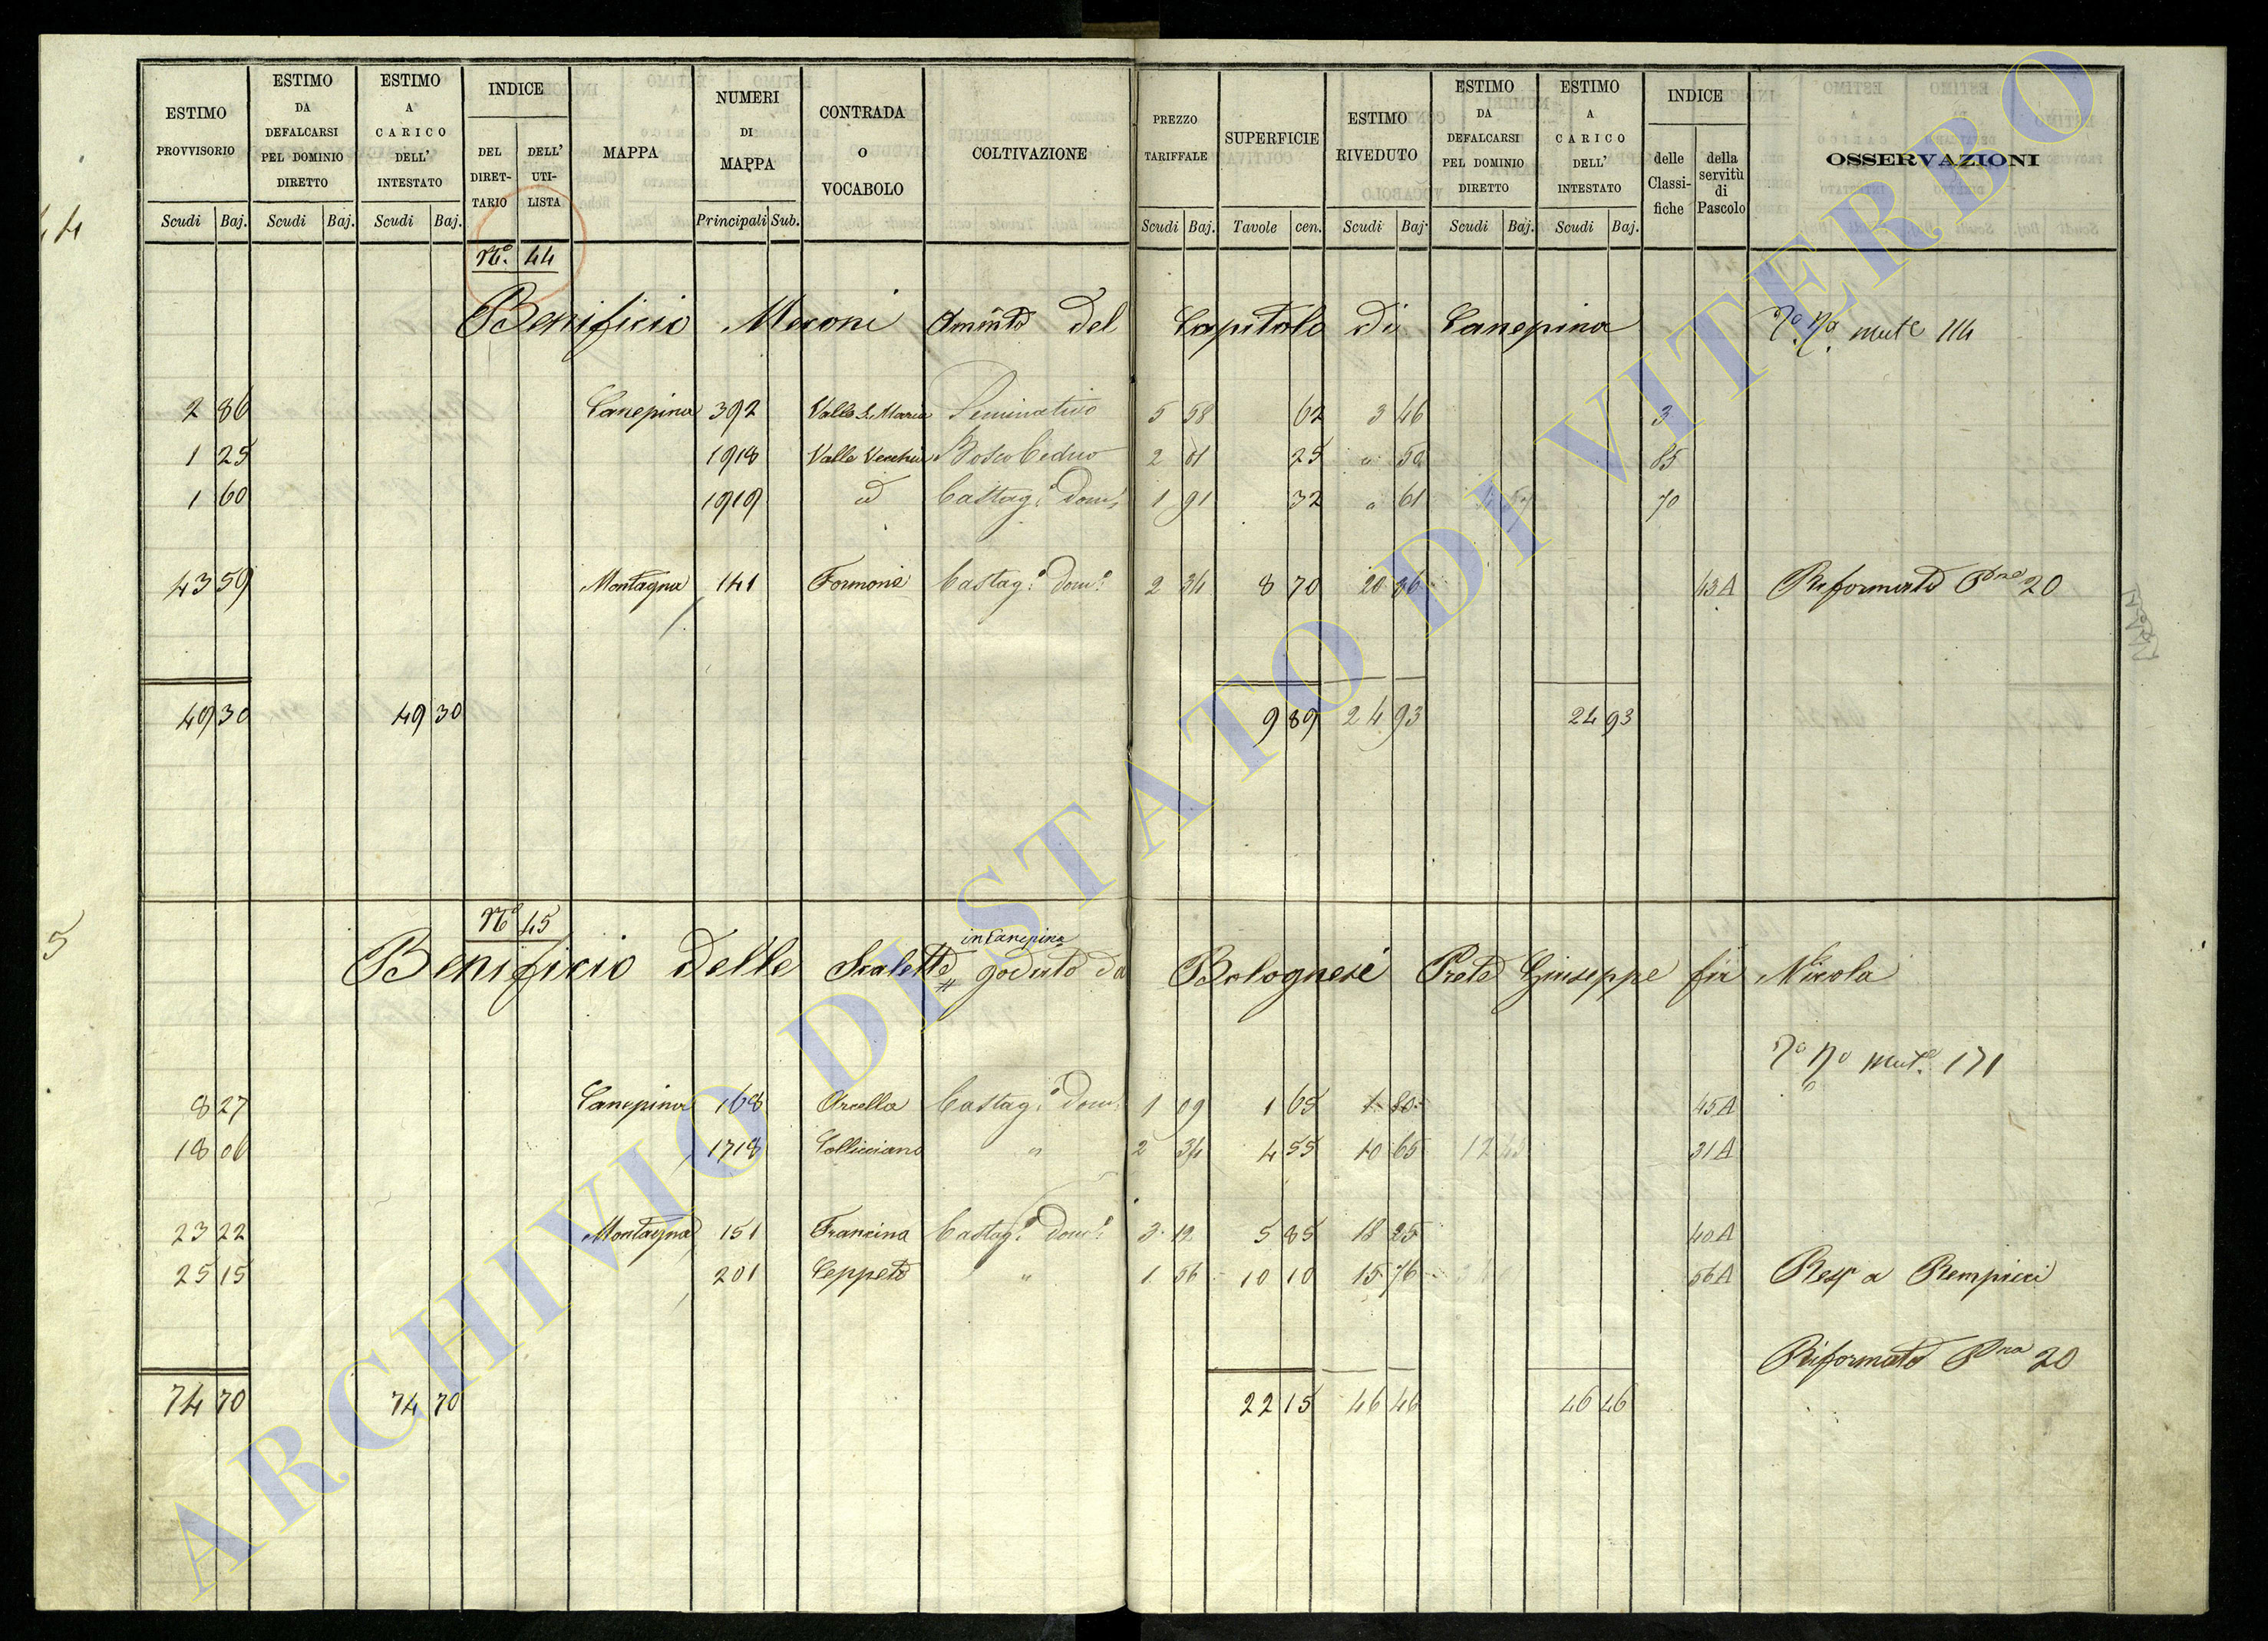 ESTIMO PROVVISORIO Scudi Baj.
ESTIMO DA DEFALCARSI PEL DOMINIO DIRETTO Scudi Baj.
ESTIMO A CARICO DELL' INTESTATO Scudi Baj.
INDICE DEL DIRET- TARIO DELL' UTI- LISTA
MAPPA
NUMERI DI MAPPA Principali Sub.
CONTRADA O VOCABOLO
COLTIVAZIONE
PREZZO TARIFFALE Scudi Baj.
SUPERFICIE Tavole cen.
ESTIMO RIVEDUTO Scudi Baj.
ESTIMO DA DEFALCARSI PEL DOMINIO DIRETTO Scudi Baj.
ESTIMO A CARICO DELL' INTESTATO Scudi Baj.
INDICE delle Classi- fiche della servitù di Pascolo
OSSERVAZIONI
N.º 44
Benificio Meconi Ammto del Capitolo di Canepina mute 114
2 86 Canepina 392 Valle S. Maria Seminativo 5 58 62 3 46 3
1 25 1918 Valle Vecchia Bosco Ceduo 2 01 25 " 50 85
1 60 1919 id Castag.º dom.º 1 91 32 " 61 70
43 59 Montagna 141 Formone Castag.º dom.º 2 34 8 70 20 36 43A Riformato 20
49 30 49 30 9 89 24 93 24 93
5
Nº 45
in Canepina
Benificio delle Scalette # goduto da Bolognesi Prete Giuseppe fu Nicola
mut.e 171
8 27 Canepina 168 Arcella Castag.º dom.º 1 09 1 65 1 80 45A
18 06 1718 Collicciano " 2 34 4 55 10 65 31A
23 22 Montagna 151 Francina Castag.º dom.º 3 12 5 85 18 25 40A
25 15 201 Ceppeto " 1 56 10 10 15 76 56A a Rempicci
Riformato 20
74 70 74 70 22 15 46 46 46 46
ARCHIVIO DI STATO DI VITERBO